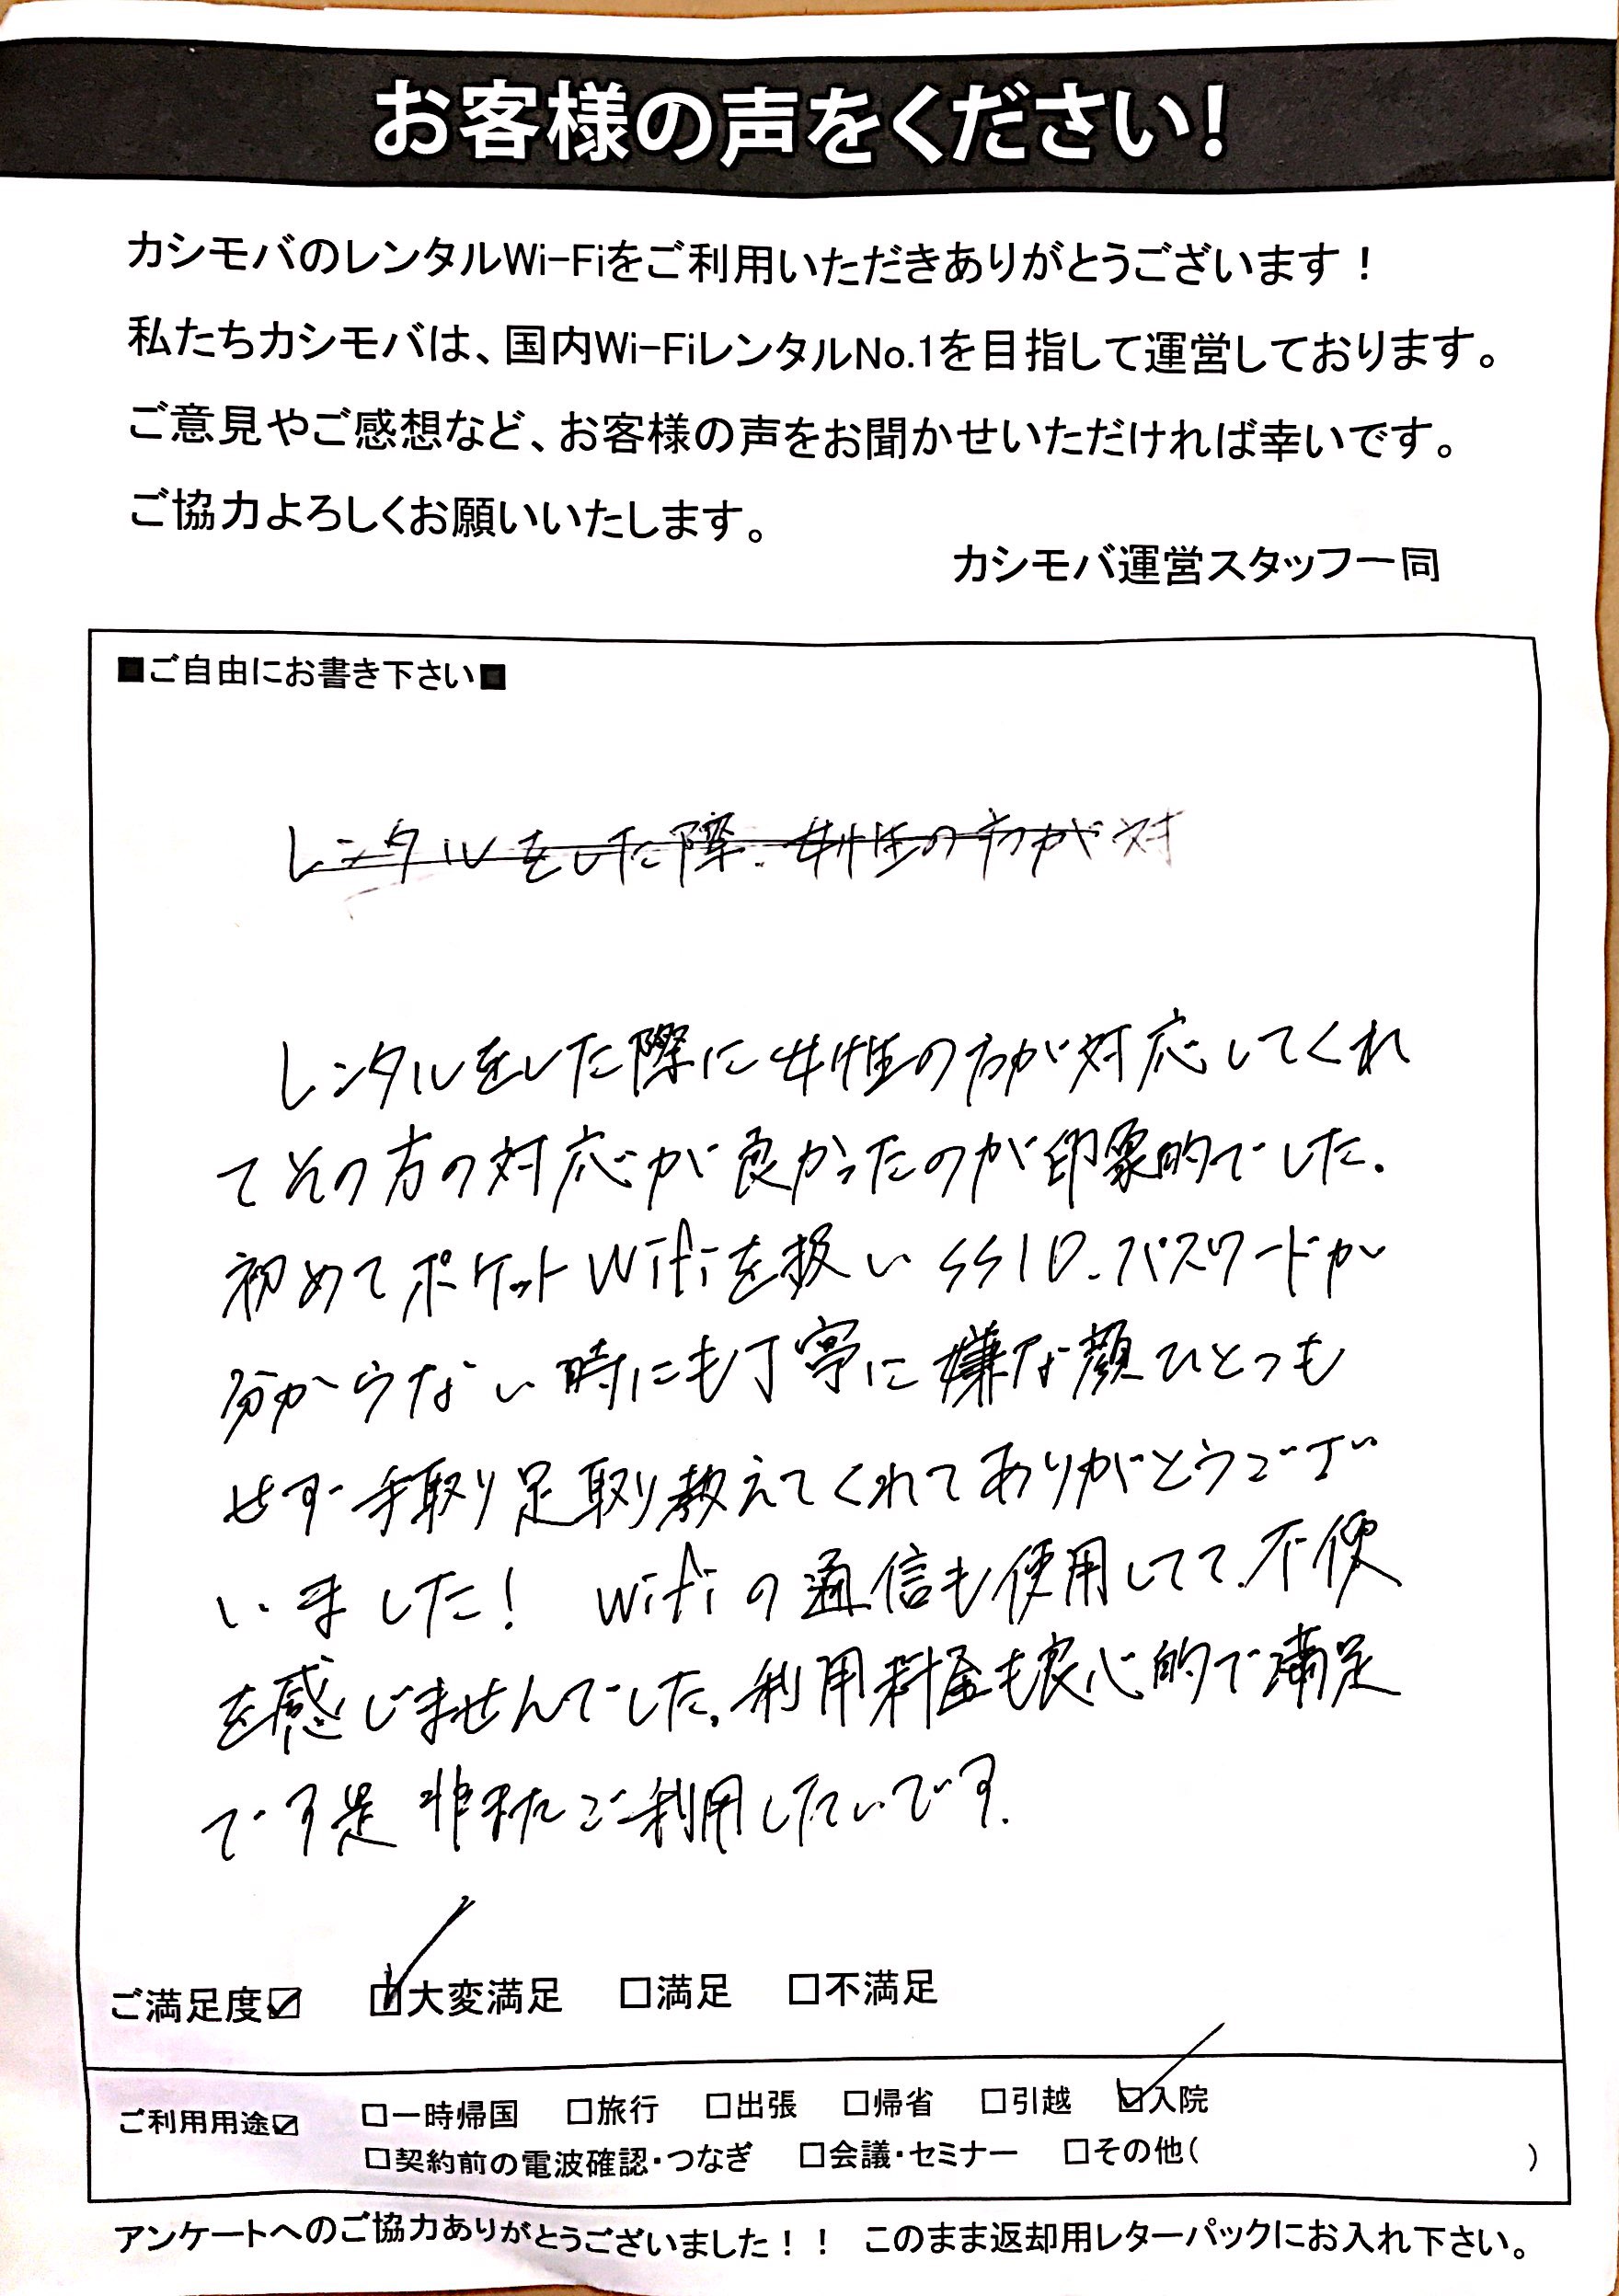 お客様の声をください!
カシモバのレンタルWi-Fiをご利用いただきありがとうございます！
私たちカシモバは、国内Wi-FiレンタルNo.1を目指して運営しております。
ご意見やご感想など、お客様の声をお聞かせいただければ幸いです。
ご協力よろしくお願いいたします。
カシモバ運営スタッフ一同
■ご自由にお書き下さい■
レンタルをした際、女性の方が対
レンタルをした際に女性の方が対応してくれ
てその方の対応が良かったのが印象的でした。
初めてポケットWifiを扱いSSID、パスワードが
分からない時にも丁寧に嫌な顔ひとつも
せず手取り足取り教えてくれてありがとうござ
いました！ Wifiの通信も使用してて、不便
を感じませんでした。利用料金も良心的で満足
です是非またご利用したいです。
ご満足度☑ ☑大変満足 □満足 □不満足
ご利用用途☑ □一時帰国 □旅行 □出張 □帰省 □引越 ☑入院
□契約前の電波確認・つなぎ □会議・セミナー □その他( )
アンケートへのご協力ありがとうございました！！ このまま返却用レターパックにお入れ下さい。